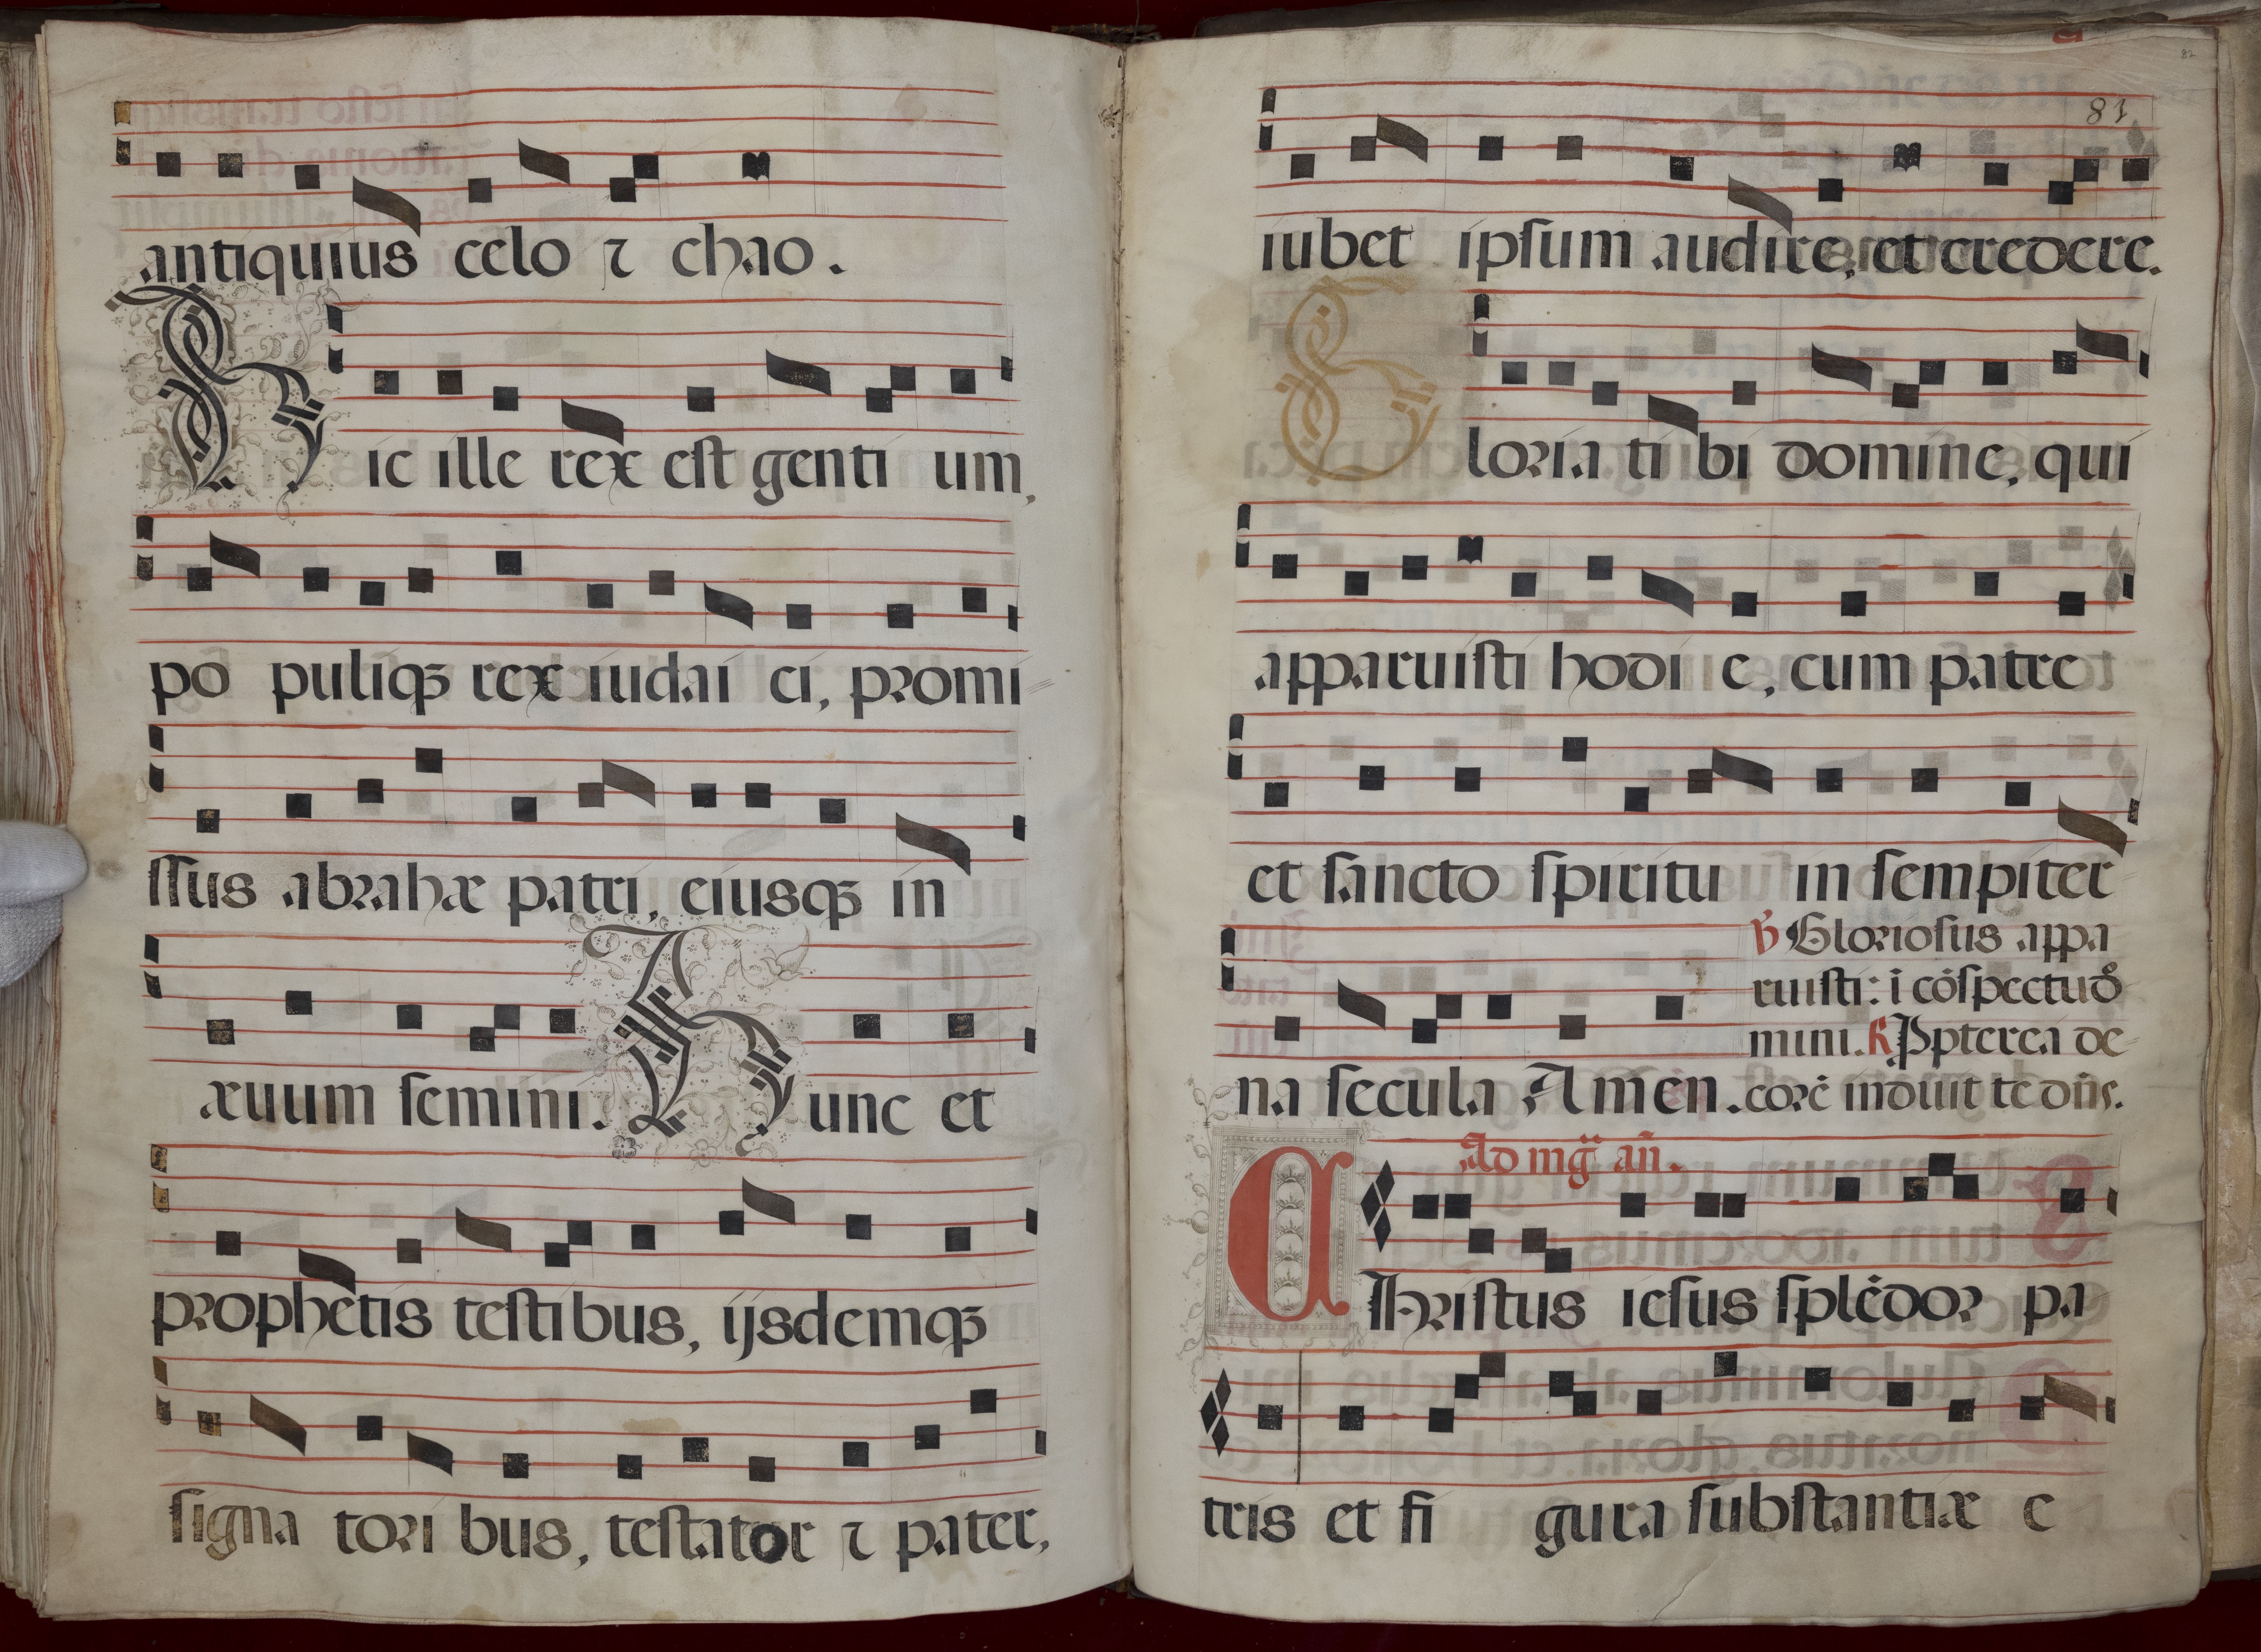 antiquius celo ⁊ chao.
Hic ille rex est gentium,
po puliqꝫ rex iudai ci, promi
ſſus abrahæ patri, eiusqꝫ in
æuum ſemini. Hunc et
prophetis teſtibus, ijsdemqꝫ
ſigna tori bus, teſtator ⁊ pater,
81
82
iubet ipſum audire, et credere.
Gloria ti bi domine, qui
apparuiſti hodi e, cum patre
et ſancto ſpiritu in ſempiter
na ſecula Amen.
℣ Glorioſus appa
ruiſti: i cōſpectu dō
mini. ℟ Ppterea de
corē induit te dn̄s.
Ad mḡ an̄.
Chriſtus ieſus ſplēdor pa
tris et fi gura ſubſtantiæ e